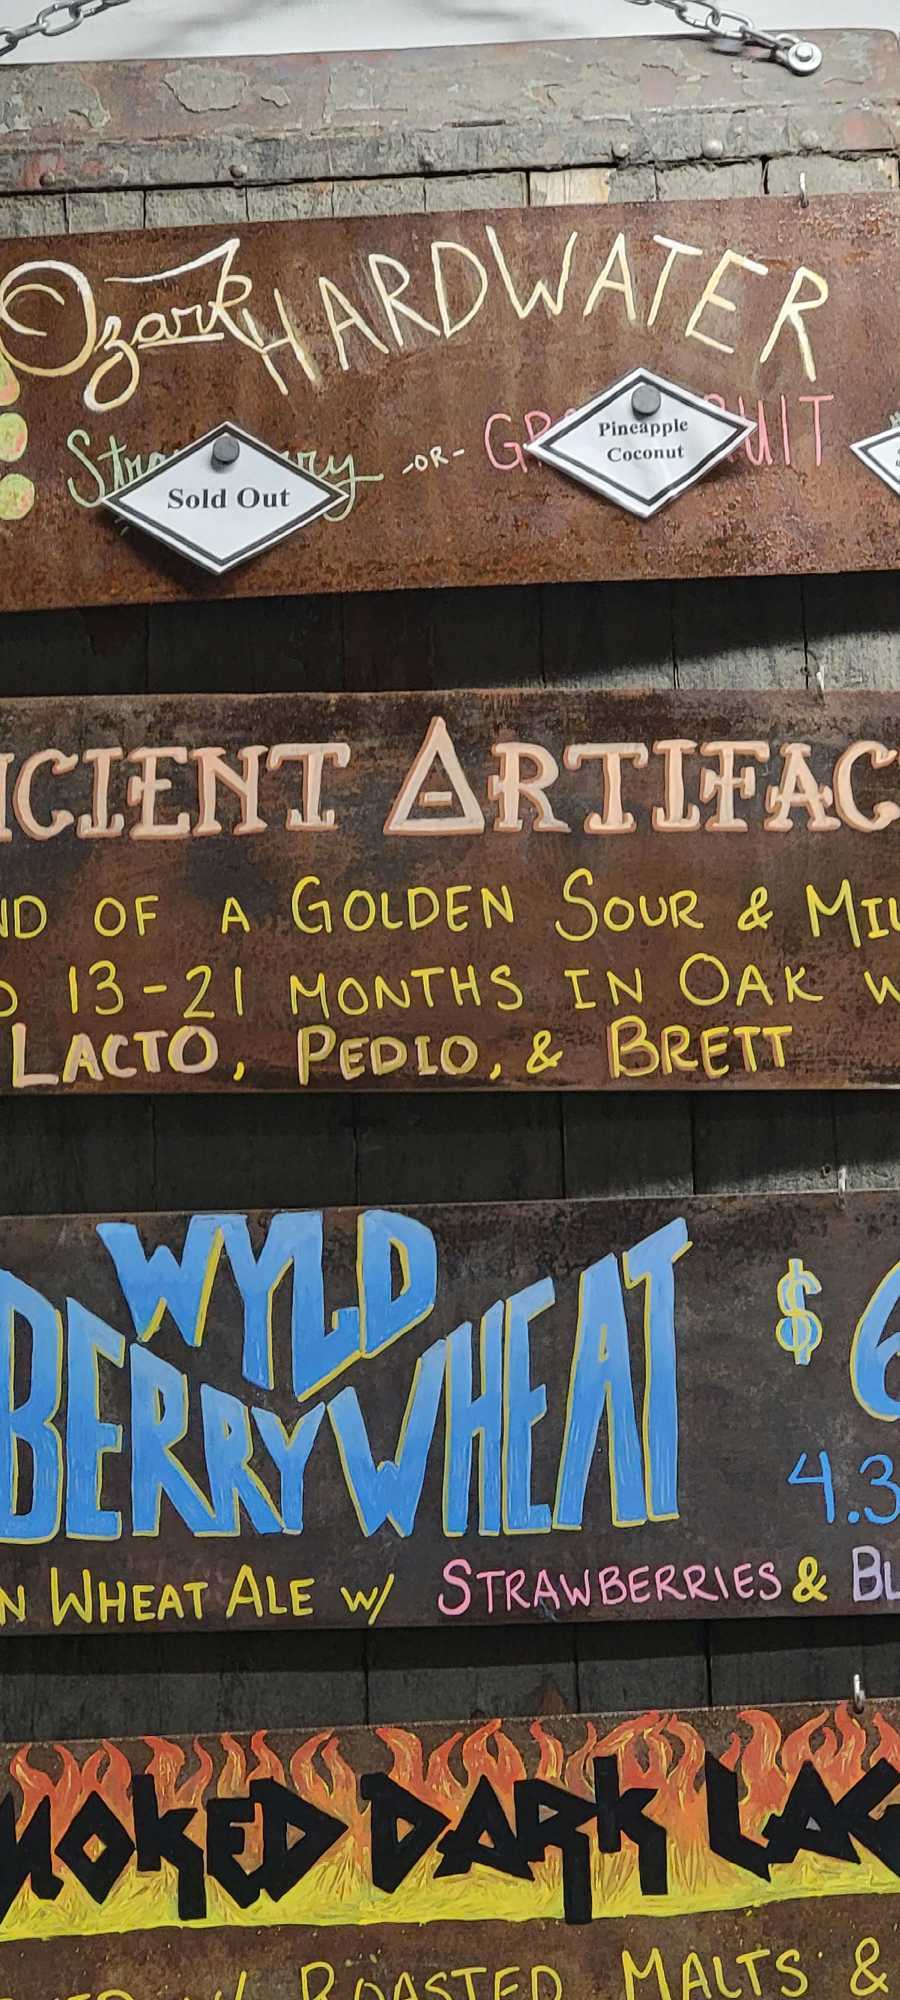 Ozark HARDWATER
Pineapple
Coconut
-OR-
Sold Out
ANCIENT ARTIFAC
ND OF A GOLDEN SOUR & MIL
13-21 MONTHS IN OAK W
LACTO, PEDIO, & BRETT
WYLD
BERRY WHEAT
$6
4.3
N WHEAT ALE W/ STRAWBERRIES & BL
MOKED DARK LAG
W/ ROASTED MALTS &